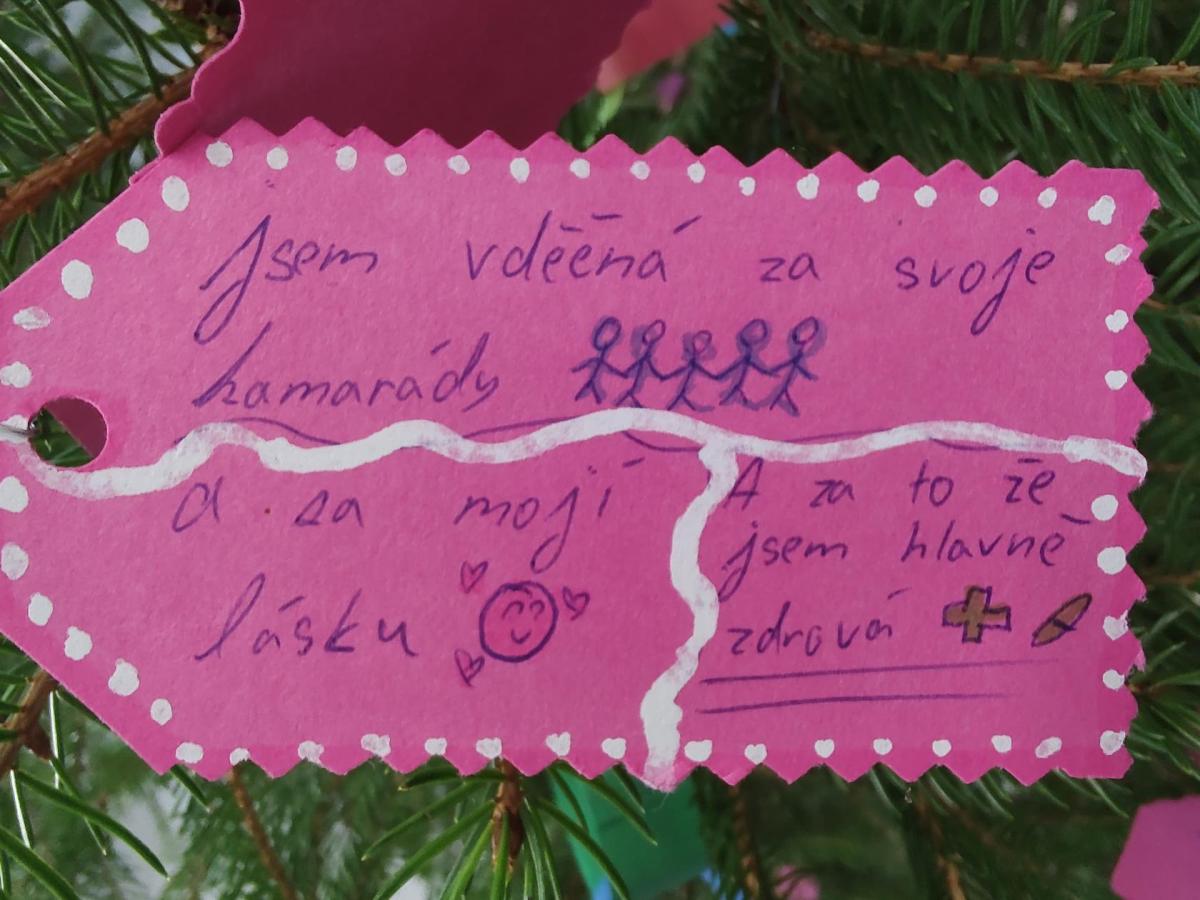 Jsem vděčná za svoje
kamarády
a za mojí
lásku
A za to že
jsem hlavně
zdravá